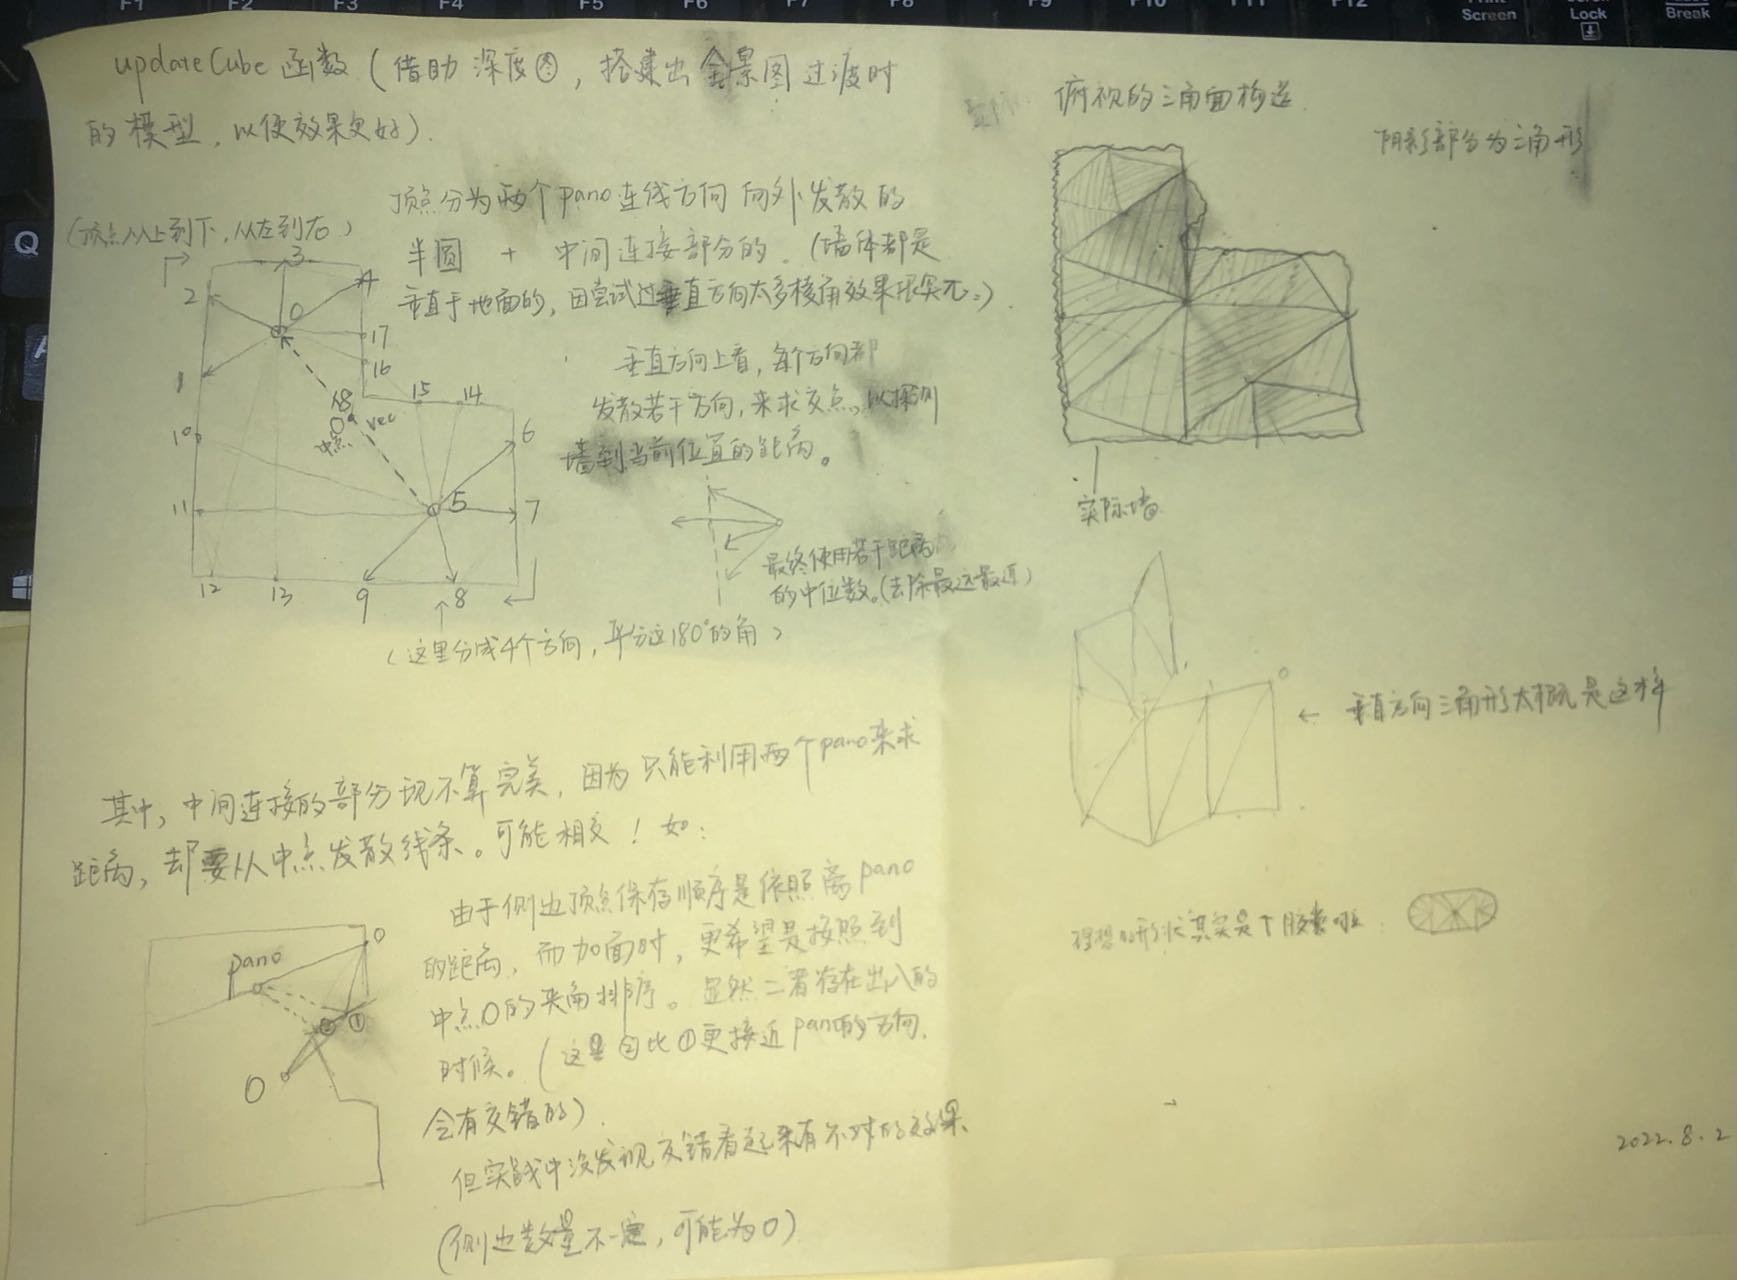 F1 F2 F3 F4 F5 F6 F7 F8 F9 F10 F11 F12
Screen
Scroll
Lock
Break
Q
updateCube 函数 (借助 深度图, 搭建出 全景图 过渡时
的 模型, 以使效果更好).
(顶点从上到下, 从左到右)
顶点分为两个pano连线方向 向外发散的
半圆 + 中间连接部分的. (墙体都是
垂直于地面的, 因尝试过垂直方向太多棱角效果很突兀)
2
3
4
0
17
16
1
18
vec
中点
15
14
6
10
11
5
7
12
13
9
8
垂直方向上看, 每个方向都
发散若干方向, 来求交点, 以探测
墙到当前位置的距离。
最终使用若干距离
的中位数。(去除最远最近)
(这里分成4个方向, 平分这180°的角)
其中, 中间连接的部分现不算完美, 因为只能利用两个pano来求
距离, 却要从中点发散线条。可能相交! 如:
pano
0
②
①
O
由于侧边顶点保存顺序是依照离pano
的距离, 而加面时, 更希望是按照到
中点O的夹角排序。显然二者存在出入的
时候。(这里②比①更接近pano的方向,
会有交错的).
但实践中没发现交错看起来有不对的效果
(侧边数量不定, 可能为0)
俯视的三角面构造.
阴影部分为三角形
实际墙
0
← 垂直方向三角形大概是这样
理想的形状其实是个胶囊啦:
2022.8.2